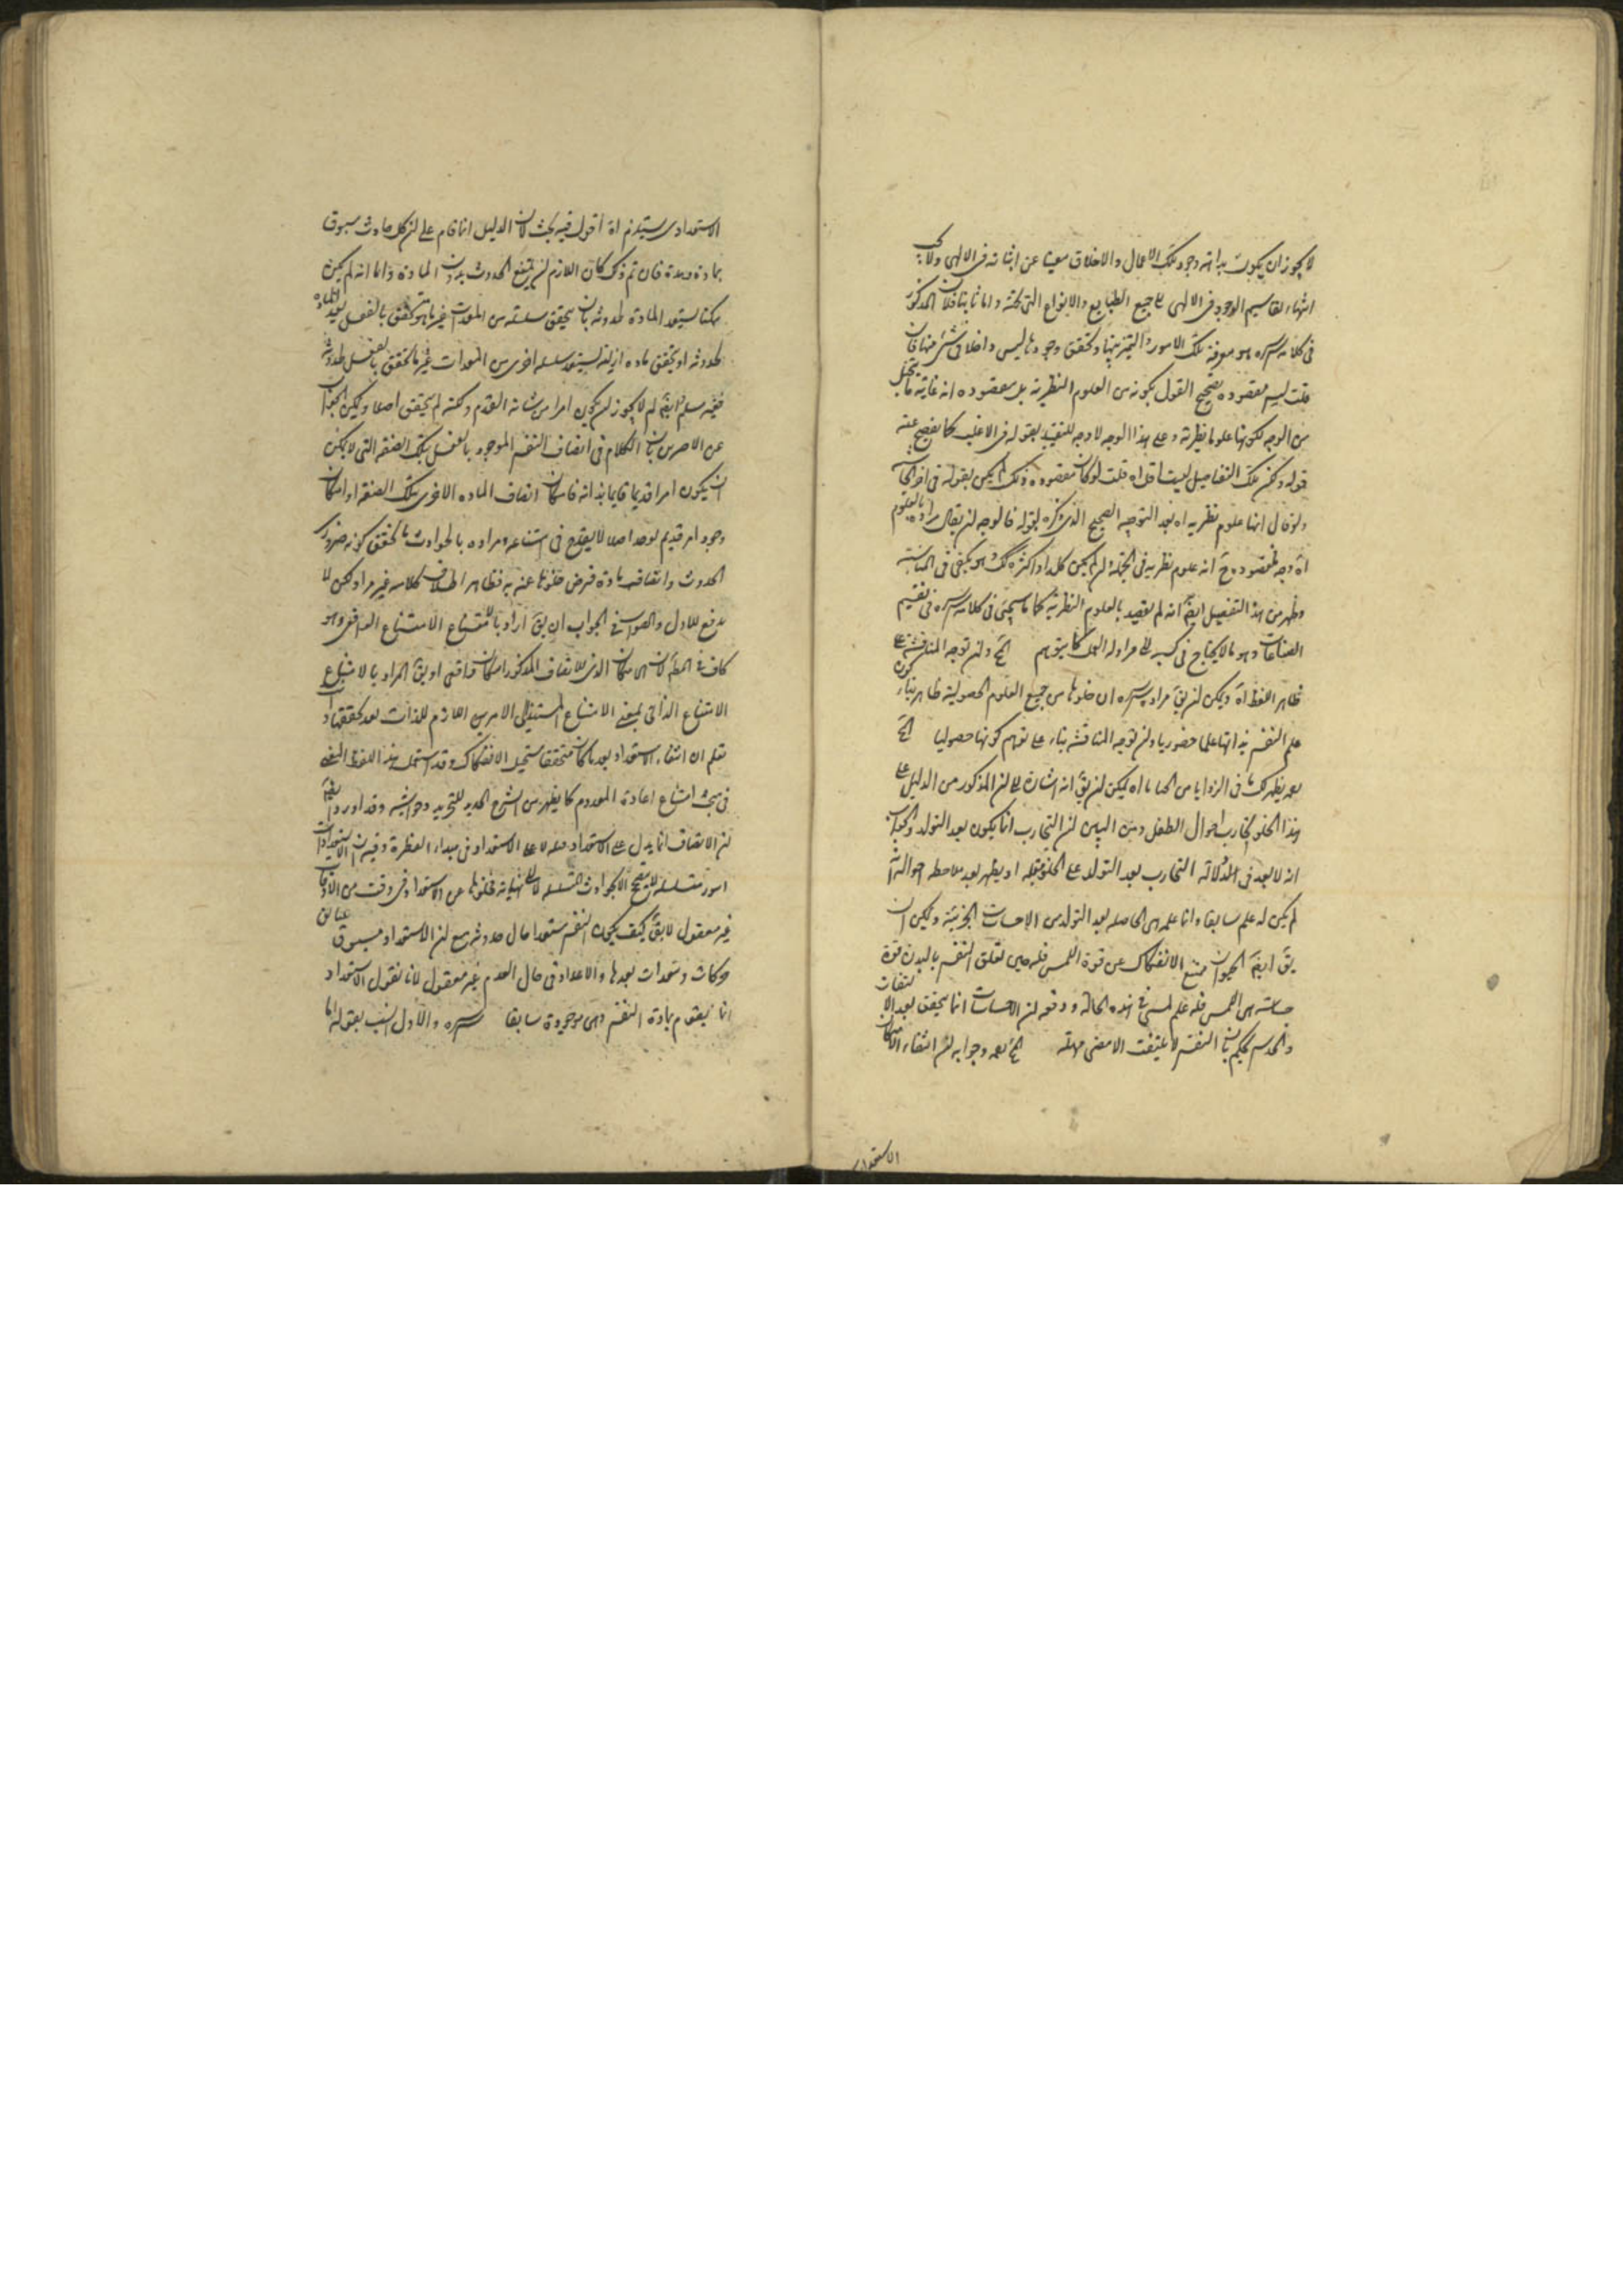 لا يجوز ان يكون بداهة وجود تلك الاعمال والاخلاق مغنيا عن اثباته فى الالهى ولا يجب
انتهاء تقاسيم الوجود فى الالهى الى جميع الطبايع والانواع التى تحته واما ثانيا فلان المذكور
فى كلامه سره هو معرفة تلك الامور والتميز بينها وتحقق وجودها ليس داخلا فى شئ منها فان
قلت ليس مقصوده تصحيح القول بكونه من العلوم النظرية بل مقصوده انه غاية ما يتخيل
من الوجه لكونها علوما نظرية وعلى هذا الوجه لا وجه للتقييد بقوله فى الاغلب كما يفصح عنه
قوله ولكن تلك التفاصيل ليست اقل اه قلت لو كان مقصوده ذلك لم يكن بقوله فى اخر الحاشية
ولو قال انها علوم نظرية اه بعد التوجيه الصحيح الذى ذكره بقوله فالوجه ان يقال مراده بالعلوم
اه وجه فمقصوده ح انه علوم نظرية فى الجملة وان لم يكن كلها او اكثره كك وهو يكفى فى المناسبة
وظهر من هذا التفصيل ايضا انه لم يقصد بالعلوم النظرية كما سيجئ فى كلامه سره فى تقسيم
الصناعات وهو ما لا يحتاج فى كسبه الى مزاولة العمل كما يتوهم الخ وان توجه المناقشة على
ظاهر اللفظ اه ويمكن ان يق مراده سره ان خلوها من جميع العلوم الحصولية ظاهر بناء كون
علم النفس بذاتها علما حضوريا وان توجه المناقشة بناء على توهم كونها حصوليا الخ
بعد يظهر لك ما فى الزوايا من الخبايا اه يمكن ان يق انه اشارة الى ان المذكور من الدليل على
هذا الخلو تجارب احوال الطفل ومن البين ان التجارب انما يكون بعد التولد والجواب
انه لا بعد فى الدلالة التجارب بعد التولد على الخلو قبله او يظهر بعد ملاحظة احواله انه
لم يكن له علم سابقا وانما علمه هى الحاصلة بعد التولد من الاحساسات الجزئية ويمكن ان
يق ايضا الحيوان ممتنع الانفكاك عن قوة اللمس فله حين تعلق النفس بالبدن قوة
حساسة هى اللمس فله علم لمسى فى هذه الحالة ودفعه ان الاحساسات انما يتحقق بعد الالتفات
والحدس يحكم بان النفس لا يلتفت الا بمضى مهلة الخ بعد وجوابه ان انتفاء الامكان
الاستعداد
الاستعدادى يستلزم اه اقول فيه بحث لان الدليل انما قام على ان كل حادث مسبوق
بمادة ومدة فان تم ذلك كان اللازم ان يمتنع الحدوث بدون المادة واما انه لم يكن
ممكنا يستعد المادة لحدوثه بان يتحقق سلسلة من المعدات غير ما هو متحقق بالفعل يعد المادة
لحدوثه او يتحقق مادة ازلية يستعد بسلسلة اخرى من المعدات غير ما تحقق بالفعل لحدوثه
فغير مسلم وايضا لم لا يجوز ان يكون امرا من شانه القدم ولكنه لم يتحقق اصلا ويمكن الجواب
عن الامرين بان الكلام فى اتصاف النفس الموجود بالفعل بتلك الصفة التى لا يمكن
ان يكون امرا قديما قايما بذاته فامكان اتصاف المادة الاخرى بتلك الصفة او امكان
وجود امر قديم لم يوجد اصلا لا يقدح فى امتناعه ومراده بالحوادث ما تحقق كونه ضرورى
الحدوث واتصافه بمادة فرض خلوها عنه به فظاهر اطلاق كلامه غير مراد لكن لا
يدفع للاول والصواب فى الجواب ان يق اراد بالامتناع الامتناع الواقعى وهو
كاف فى المط لان الامكان الذى للاتصاف المذكور امكان واقعى او يق المراد بالامتناع
الامتناع الذاتى بمعنى الامتناع المستند الى الامرين اللازم للذات بعد تحققها
تعلم ان انتفاء الاستعداد بعد ما كان متحققا مستحيل الانفكاك وقد استعمل هذا اللفظ المعنى
فى بحث امتناع اعادة المعدوم كما يظهر من الشرح الجديد للتجريد وحواشيه وقد اورد ايضا
ان الاتصاف انما يدل على الاستعداد قبله لا على الاستعداد فى مبداء الفطرة وفيه ان الاستعدادات
امور متسلسلة لتصحح الحوادث المتسلسلة لا الى نهاية فخلوها عن الاستعداد فى وقت من الاوقات
غير معقول لا يق كيف يكون النفس مستعدا حال حدوثه مع ان الاستعداد مسبوق
حركات ومعدات بعدها والاعداد فى حال العدم غير معقول لانا نقول الاستعداد
انما يقوم بمادة النفس وهى موجودة سابقا سره والاول انسب بقوله انما